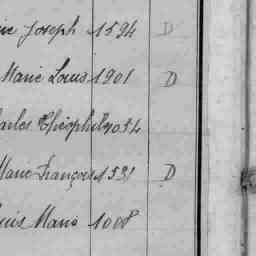 Joseph 1594 D
Marie Louis 1901 D
Charles Théophile 1054
Marie François 1531 D
Louis Marie 1008